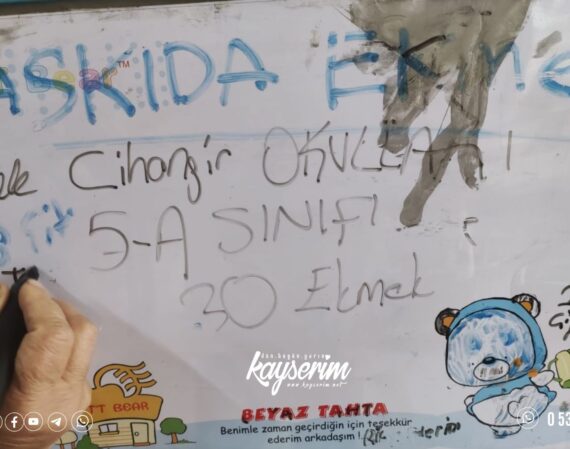 ASKIDA EKME
Cihangir OKULLARI
5-A SINIFI
30 Ekmek
dün.bugün.yarın
kayserim
www.kayserim.net
TT BEAR
BEYAZ TAHTA
Benimle zaman geçirdiğin için teşekkür
ederim arkadaşım !
0 53